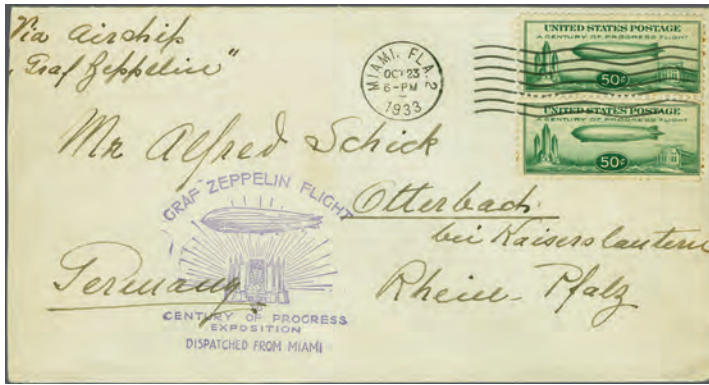 Via Airship
„Graf Zeppelin"
MIAMI, FLA. 2
OCT 23
6-PM
1933
UNITED STATES POSTAGE
A CENTURY OF PROGRESS FLIGHT
50¢
UNITED STATES POSTAGE
A CENTURY OF PROGRESS FLIGHT
50¢
Mr Alfred Schick
Otterbach
bei Kaiserslautern
Rhein-Pfalz
Germany
GRAF ZEPPELIN FLIGHT
CENTURY OF PROGRESS
EXPOSITION
DISPATCHED FROM MIAMI